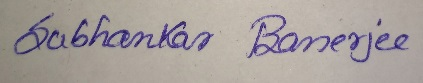 Subhankar Banerjee